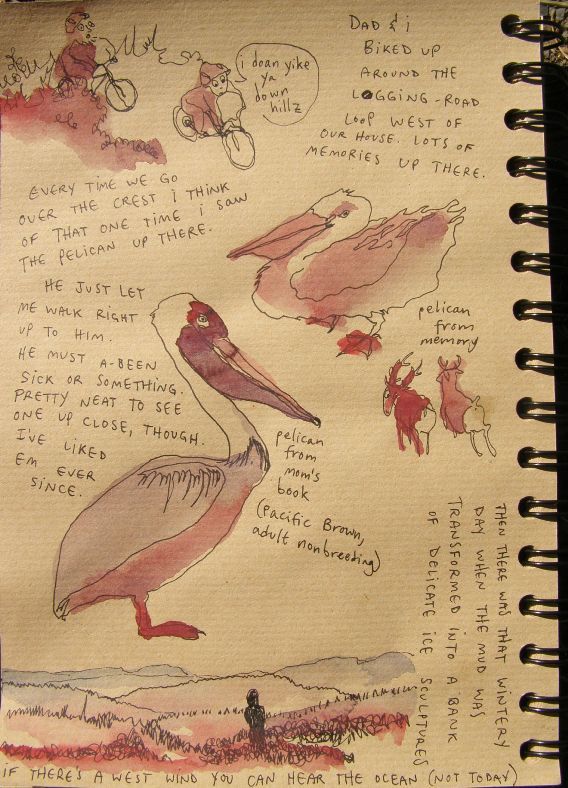 DAD & i
BIKED UP
AROUND THE
LOGGING-ROAD
LOOP WEST OF
OUR HOUSE. LOTS OF
MEMORIES UP THERE.
i doan yike
ya
down
hillz
EVERY TIME WE GO
OVER THE CREST i THINK
OF THAT ONE TIME i SAW
THE PELICAN UP THERE.
HE JUST LET
ME WALK RIGHT
UP TO HIM.
HE MUST A-BEEN
SICK OR SOMETHING.
PRETTY NEAT TO SEE
ONE UP CLOSE, THOUGH.
I'VE LIKED
EM EVER
SINCE.
pelican
from
memory
pelican
from
mom's
book
(Pacific Brown,
adult nonbreeding)
THEN THERE WAS THAT WINTERY
DAY WHEN THE MUD WAS
TRANSFORMED INTO A BANK
OF DELICATE ICE SCULPTURES
IF THERE'S A WEST WIND YOU CAN HEAR THE OCEAN (NOT TODAY)